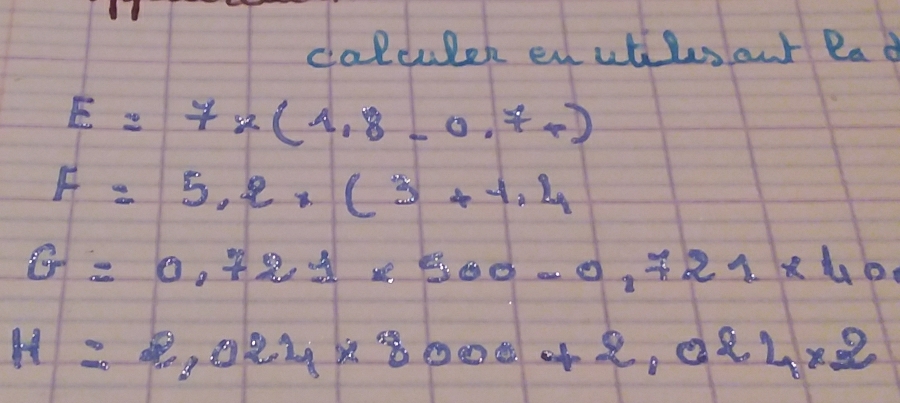 calculer en utilisant la
E = 7 × ( 1,8 - 0,7 + )
F = 5,2 × ( 3 + 1,4
G = 0,721 × 500 - 0,721 × 400
H = 2,024 × 3000 + 2,024 × 2